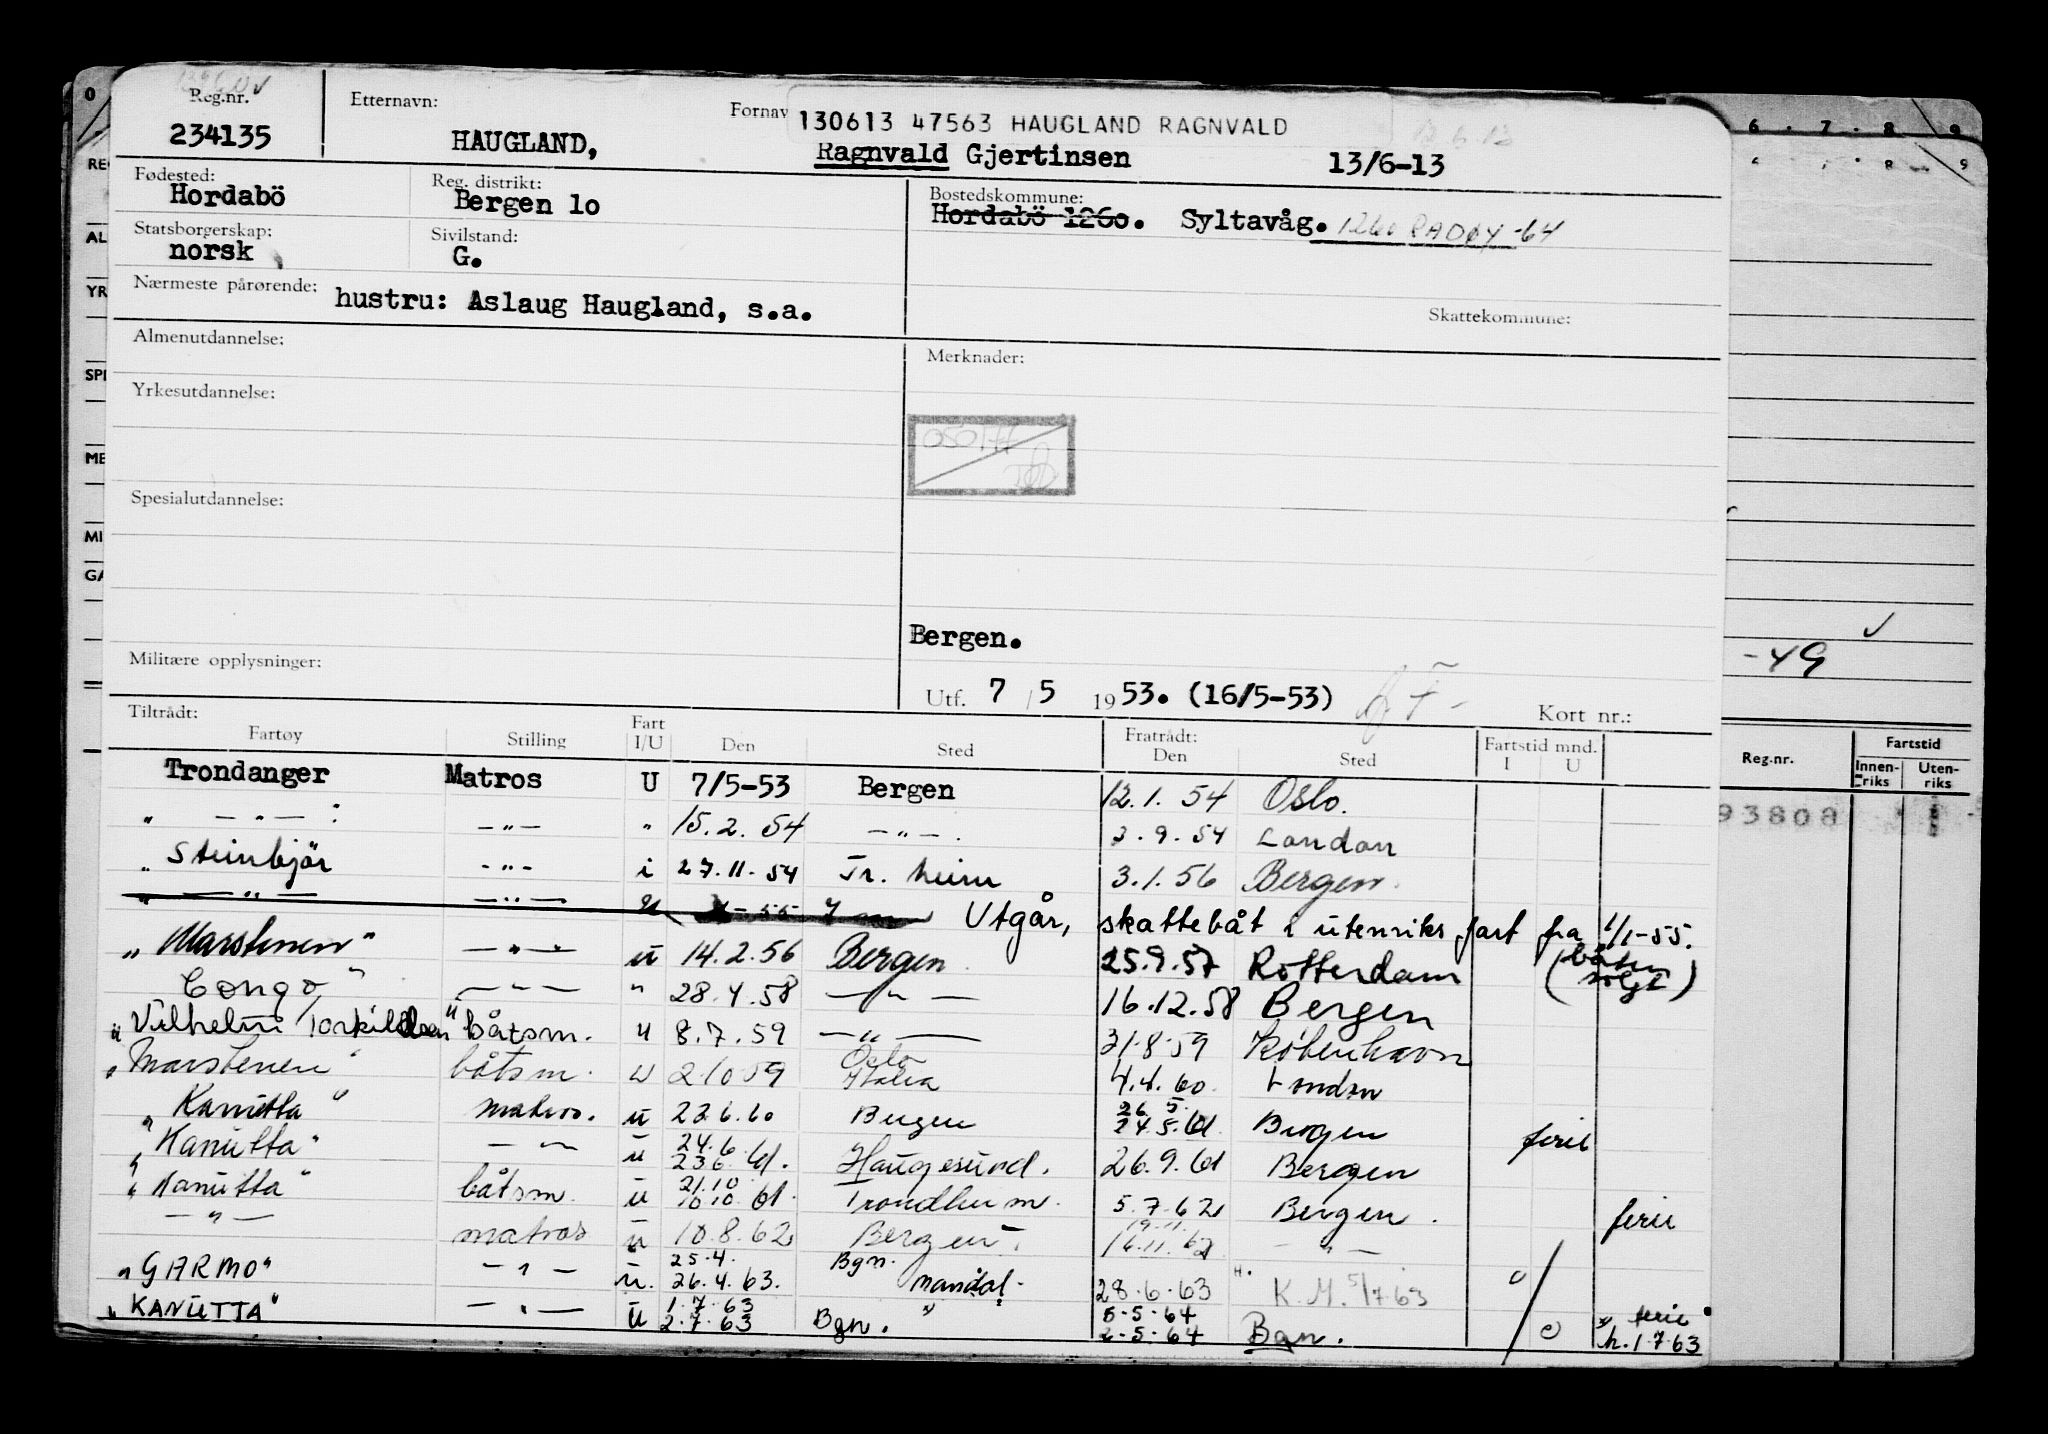 Reg.nr.
234135
Etternavn:
HAUGLAND,
Fornav
130613 47563 HAUGLAND RAGNVALD
Ragnvald Gjertinsen 13/6-13
Fødested:
Hordabö
Reg. distrikt:
Bergen lo
Bostedskommune:
Hordabö 126o. Syltavåg. 1260 RADØY -64
Statsborgerskap:
norsk
Sivilstand:
G.
Nærmeste pårørende:
hustru: Aslaug Haugland, s.a.
Skattekommune:
Almenutdannelse:
Merknader:
Yrkesutdannelse:
Spesialutdannelse:
Bergen.
Militære opplysninger:
Utf. 7 / 5 1953. (16/5-53)
Kort nr.:
Tiltrådt:
Fartøy Stilling Fart I/U Den Sted
Fratrådt:
Den Sted Fartstid mnd. I U
Trondanger Matros U 7/5-53 Bergen 12.1.54 Oslo.
" - " - : - " - " 15.2.54 - " - . 3.9.54 London
" Steinbjör - " - i 27.11.54 Tr.heim 3.1.56 Bergen.
" - " - - " - Utgår, skattebåt i utenriks fart fra 1/1-55.
"Marstenen" - " - u 14.2.56 Bergen 25.9.57 Rotterdam (båten solgt)
Congo" - " - " 28.4.58 - " - 16.12.58 Bergen
"Vilhelm Torkildsen" båtsm. u 8.7.59 - " - 31.8.59 København
"Marstenen" båtsm. u 2.10.59 Oslo Italia 4.4.60 London
"Kanutta" matros. u 23.6.60 Bergen 26.5. 24.5.61 Bergen ferie
"Kanutta" - " - u 24.6. 23.6.61. Haugesund. 26.9.61 Bergen
"Kanutta" båtsm. u 21.10. 10.10.61. Trondheim. 5.7.62 Bergen. ferie
- " - matros u 10.8.62 Bergen. 19.11. 16.11.62 - " -
"GARMO" - " - u. 25.4. 26.4.63. Bgn. Mandal. 28.6.63 K.M. 5/7 63
"KANUTTA" - " - u 1.7.63 2.7.63 Bgn. " 5-5-64 2-5-64 Bgn. ferie h. 1.7.63
- 49
Reg.nr. Fartstid
Innenriks Utenriks
93808
6 7 8 9